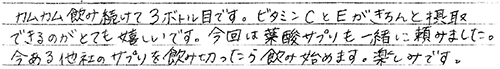 カムカム飲み続けて3ボトル目です。ビタミンCとEがきちんと摂取
できるのがとても嬉しいです。今回は葉酸サプリも一緒に頼みました。
今ある他社のサプリを飲み切ったら飲み始めます。楽しみです。